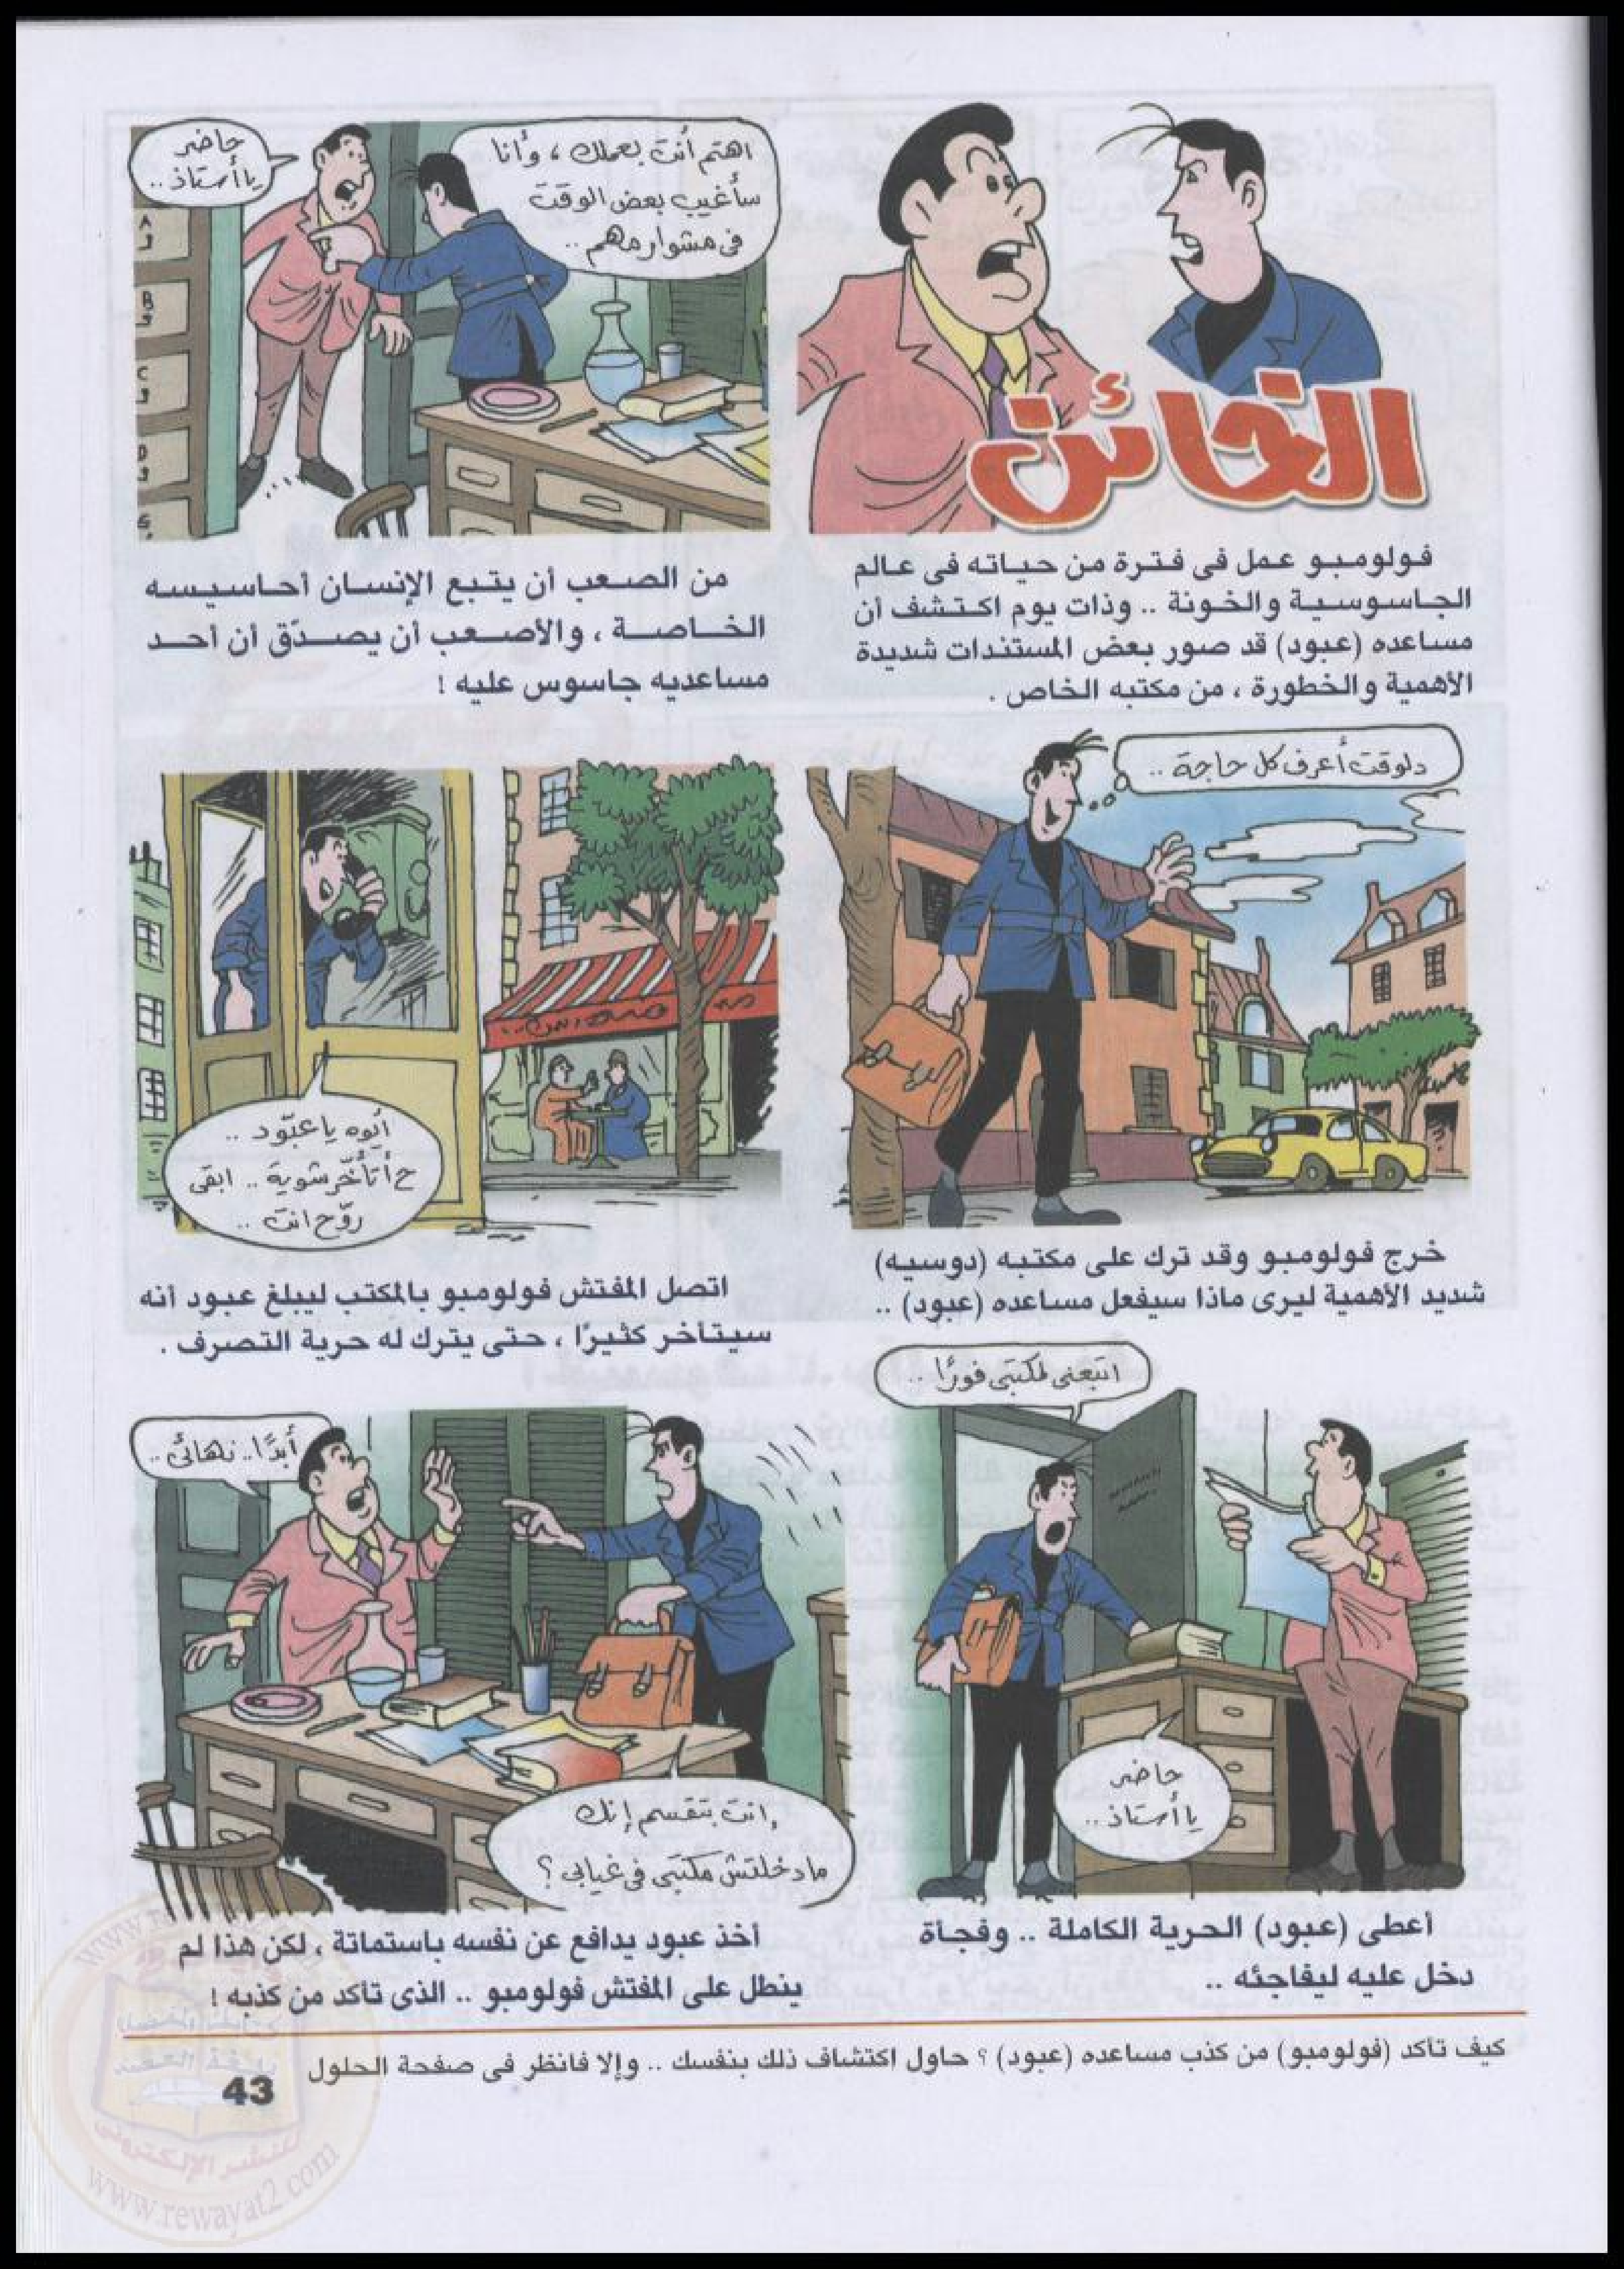 الخائن
فولومبو عمل فى فترة من حياته فى عالم
الجاسوسية والخونة .. وذات يوم اكتشف أن
مساعده (عبود) قد صور بعض المستندات شديدة
الأهمية والخطورة ، من مكتبه الخاص .
اهتم أنت بعملك ، وأنا
سأغيب بعض الوقت
فى مشوار مهم ..
حاضر
يا أستاذ ..
A
B
C
D
من الصعب أن يتبع الإنسان أحاسيسه
الخاصة ، والأصعب أن يصدّق أن أحد
مساعديه جاسوس عليه !
دلوقت أعرف كل حاجة ..
خرج فولومبو وقد ترك على مكتبه (دوسيه)
شديد الأهمية ليرى ماذا سيفعل مساعده (عبود) ..
أيوه يا عبّود ..
ح أتأخّر شوية .. ابقى
روّح انت ..
اتصل المفتش فولومبو بالمكتب ليبلغ عبود أنه
سيتأخر كثيرًا ، حتى يترك له حرية التصرف .
اتبعنى لمكتبى فورًا ..
حاضر
يا أستاذ ..
أعطى (عبود) الحرية الكاملة .. وفجأة
دخل عليه ليفاجئه ..
أبدًا.. نهائى ..
انت بتقسم إنك
ما دخلتش مكتبى فى غيابى ؟
أخذ عبود يدافع عن نفسه باستماتة ، لكن هذا لم
ينطل على المفتش فولومبو .. الذى تأكد من كذبه !
كيف تأكد (فولومبو) من كذب مساعده (عبود) ؟ حاول اكتشاف ذلك بنفسك .. وإلا فانظر فى صفحة الحلول
43
للنشر الإلكترونى
www.rewayat2.com